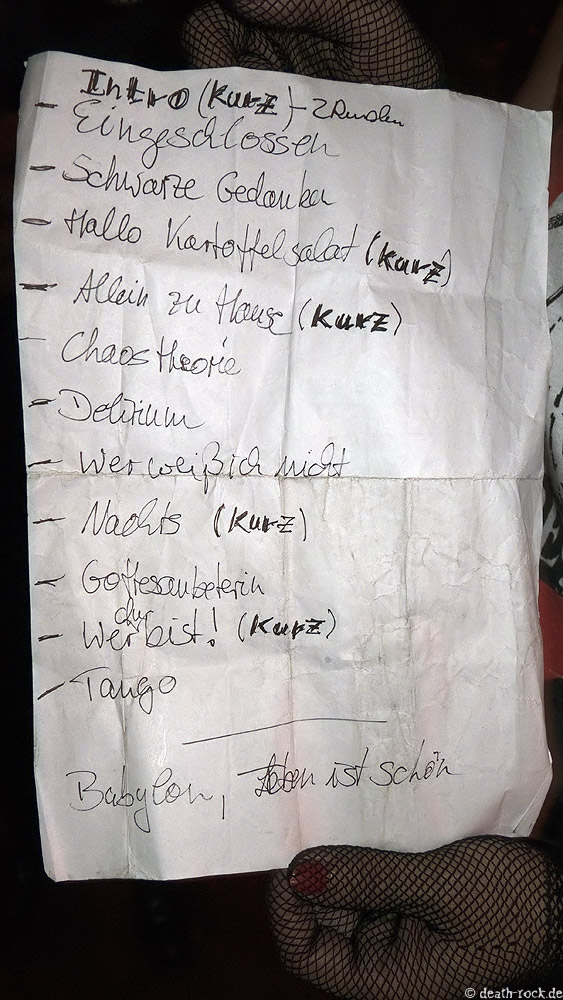 Intro (Kurz) - 2 Runden
- Eingeschlossen
- Schwarze Gedanken
- Hallo Kartoffelsalat (Kurz)
- Allein zu Hause (Kurz)
- Chaostheorie
- Delirium
- Wer weiß ich nicht
- Nachts (Kurz)
- Gottesanbeterin
- Wer du bist! (Kurz)
- Tango
Babylon, Leben ist schön
© death-rock.de